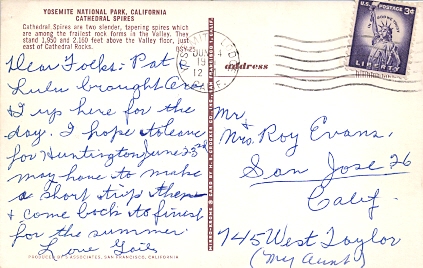 YOSEMITE NATIONAL PARK, CALIFORNIA
CATHEDRAL SPIRES
Cathedral Spires are two slender, tapering spires which
are among the frailest rock forms in the Valley. They
stand 1,950 and 2,160 feet above the Valley floor, just
east of Cathedral Rocks.
Dear Folks: Pat
Lulu brought
& I up here for the
day. I hope to leave
for Huntington June 23rd
may have to make
a short trip then
& come back to finish
for the summer.
Love Gail
PRODUCED BY ASSOCIATES, SAN FRANCISCO, CALIFORNIA
address
JUN 4
12
U.S. POSTAGE 3¢
LIBERTY
Mr
& Mrs. Roy Evans,
San Jose 26
Calif.
745 West Taylor
(My Aunt)